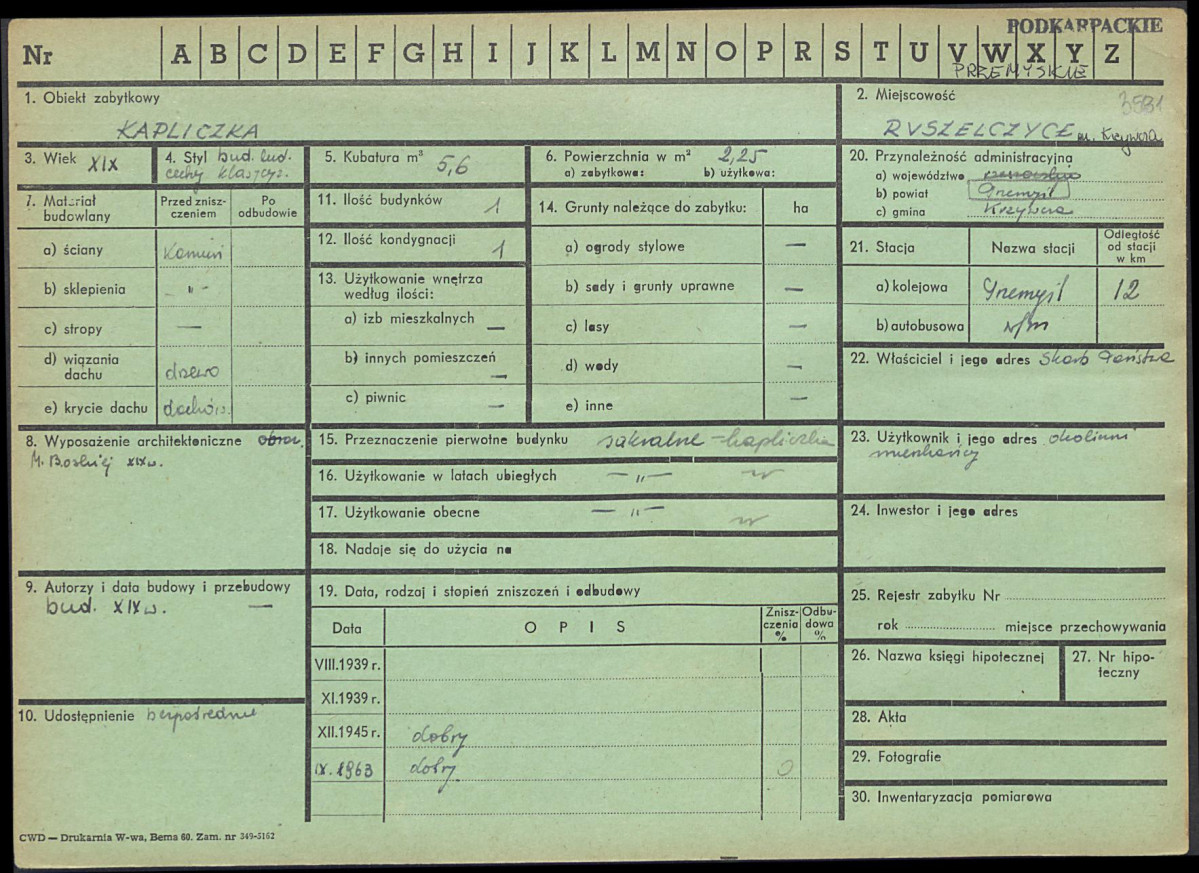 PODKARPACKIE
Nr A B C D E F G H I J K L M N O P R S T U V W X Y Z
PRZEMYSKIE
1. Obiekt zabytkowy
KAPLICZKA
2. Miejscowość
3581
RUSZELCZYCE m. Krzywcza
3. Wiek XIX
4. Styl bud. lud.
cechy klasycz.
5. Kubatura m³ 5,6
6. Powierzchnia w m² 2,25
a) zabytkowa: b) użytkowa:
20. Przynależność administracyjna
a) województwo rzeszowskie
b) powiat Przemyśl
c) gmina Krzywcza
7. Materiał
budowlany
Przed znisz-
czeniem
Po
odbudowie
a) ściany kamień
b) sklepienia -"-
c) stropy —
d) wiązania
dachu drzewo
e) krycie dachu dachów.
11. Ilość budynków 1
12. Ilość kondygnacji 1
13. Użytkowanie wnętrza
według ilości:
a) izb mieszkalnych —
b) innych pomieszczeń —
c) piwnic —
14. Grunty należące do zabytku: ha
a) ogrody stylowe —
b) sady i grunty uprawne —
c) lasy —
d) wody —
e) inne —
21. Stacja Nazwa stacji
Odległość
od stacji
w km
a) kolejowa Przemyśl 12
b) autobusowa w/m
22. Właściciel i jego adres Skarb Państwa
8. Wyposażenie architektoniczne obraz
M. Boskiej XIX w.
15. Przeznaczenie pierwotne budynku sakralne – kapliczka
16. Użytkowanie w latach ubiegłych —"—
17. Użytkowanie obecne —"—
18. Nadaje się do użycia na
23. Użytkownik i jego adres okoliczni
mieszkańcy
24. Inwestor i jego adres
9. Autorzy i data budowy i przebudowy
bud. XIX w. —
19. Data, rodzaj i stopień zniszczeń i odbudowy
Data OPIS
Znisz-
czenia
%
Odbu-
dowa
%
VIII.1939 r.
XI.1939 r.
XII.1945 r. dobry
IX. 1963 dobry 0
25. Rejestr zabytku Nr
rok miejsce przechowywania
26. Nazwa księgi hipotecznej
27. Nr hipo-
teczny
10. Udostępnienie bezpośrednie
28. Akta
29. Fotografie
30. Inwentaryzacja pomiarowa
CWD — Drukarnia W-wa, Bema 60. Zam. nr 349-5162